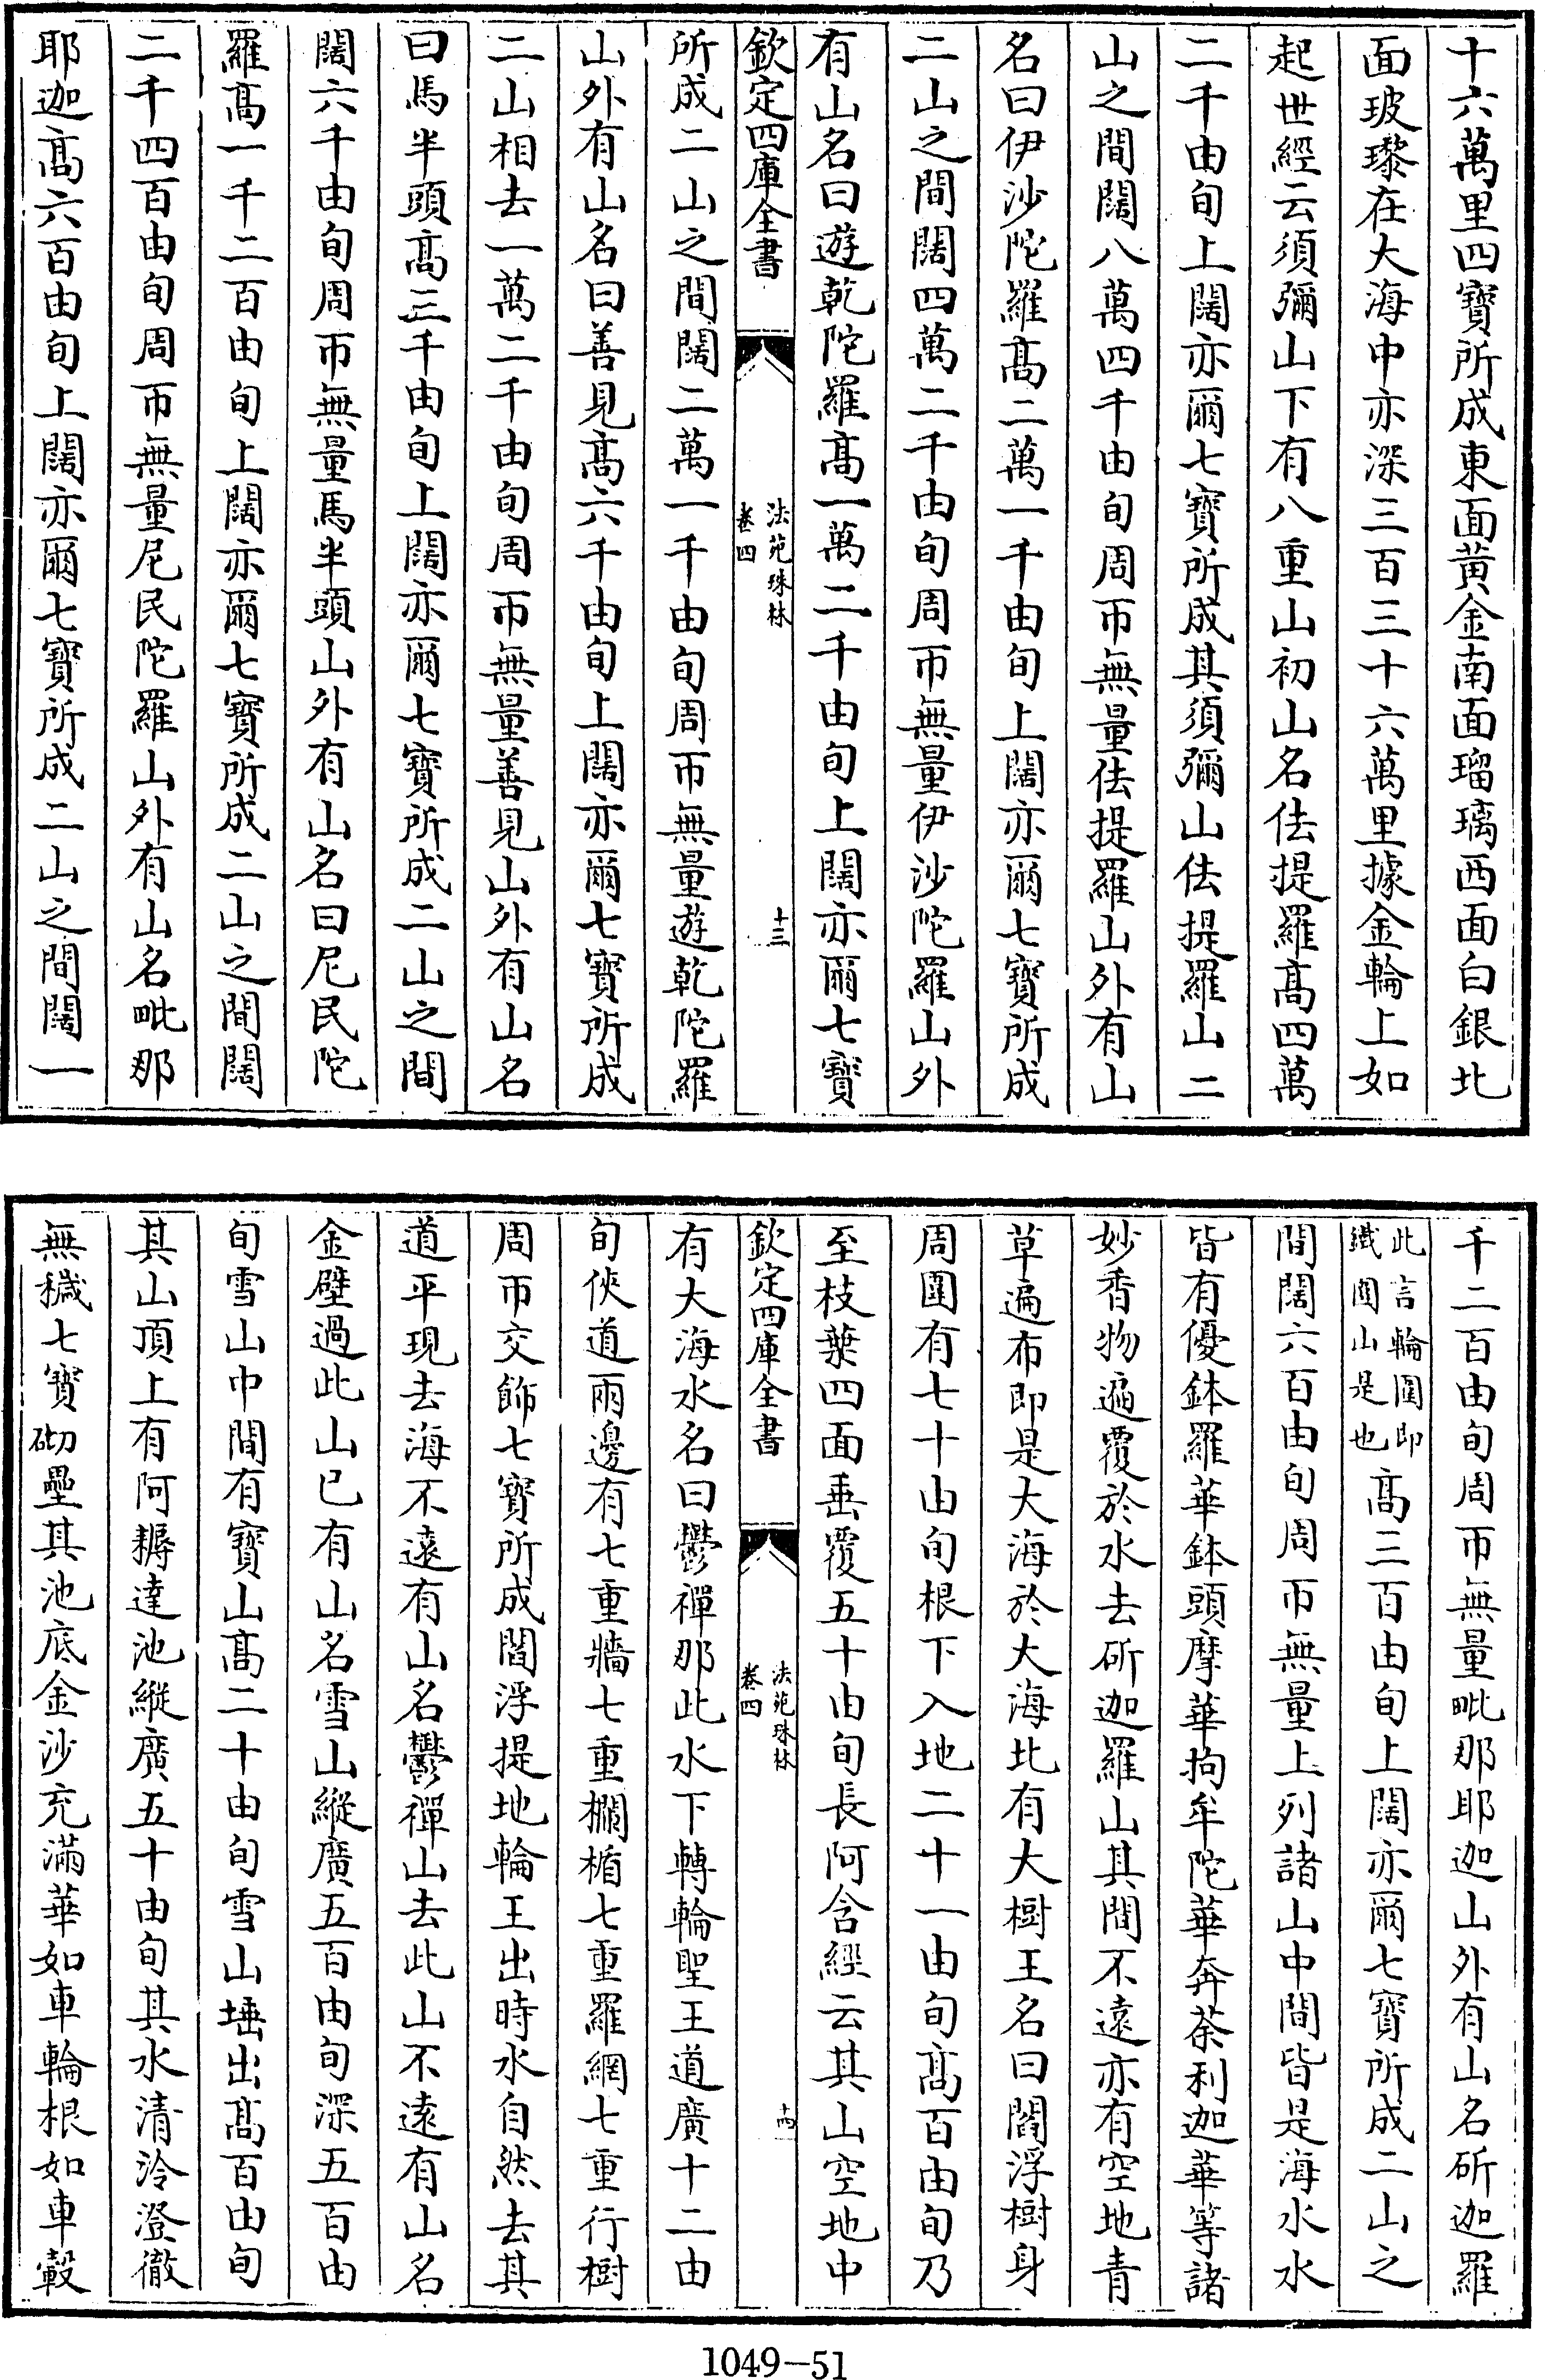 十六萬里四寶所成東面黄金南面瑠璃西面白銀北
面玻瓈在大海中亦深三百三十六萬里據金輪上如
起世經云須彌山下有八重山初山名佉提羅髙四萬
二千由旬上闊亦爾七寶所成其須彌山佉提羅山二
山之間闊八萬四千由旬周帀無量佉提羅山外有山
名曰伊沙陀羅髙二萬一千由旬上闊亦爾七寶所成
二山之間闊四萬二千由旬周帀無量伊沙陀羅山外
有山名曰遊乾陀羅髙一萬二千由旬上闊亦爾七寶
欽定四庫全書
法苑珠林
卷四
十三
所成二山之間闊二萬一千由旬周帀無量遊乾陀羅
山外有山名曰善見髙六千由旬上闊亦爾七寶所成
二山相去一萬二千由旬周帀無量善見山外有山名
曰馬半頭髙三千由旬上闊亦爾七寶所成二山之間
闊六千由旬周帀無量馬半頭山外有山名曰尼民陀
羅髙一千二百由旬上闊亦爾七寶所成二山之間闊
二千四百由旬周帀無量尼民陀羅山外有山名毗那
耶迦髙六百由旬上闊亦爾七寶所成二山之間闊一
千二百由旬周帀無量毗那耶迦山外有山名斫迦羅
此言輪圍即
鐵圍山是也
髙三百由旬上闊亦爾七寶所成二山之
間闊六百由旬周帀無量上列諸山中間皆是海水水
皆有優鉢羅華鉢頭摩華拘牟陀華奔荼利迦華等諸
妙香物遍覆於水去斫迦羅山其間不遠亦有空地青
草遍布即是大海於大海北有大樹王名曰閻浮樹身
周圍有七十由旬根下入地二十一由旬髙百由旬乃
至枝葉四面垂覆五十由旬長阿含經云其山空地中
欽定四庫全書
法苑珠林
卷四
十四
有大海水名曰鬱禪那此水下轉輪聖王道廣十二由
旬俠道兩邊有七重牆七重欄楯七重羅網七重行樹
周帀交飾七寶所成閻浮提地輪王出時水自然去其
道平現去海不遠有山名鬱禪山去此山不遠有山名
金壁過此山已有山名雪山縱廣五百由旬深五百由
旬雪山中間有寶山髙二十由旬雪山埵出髙百由旬
其山頂上有阿耨達池縱廣五十由旬其水清泠澄徹
無穢七寶砌壘其池底金沙充滿華如車輪根如車轂
1049-51